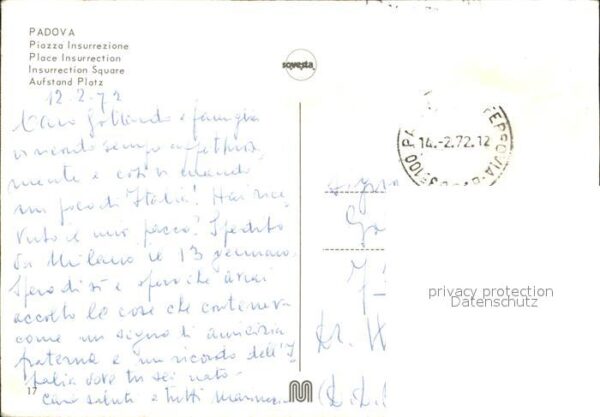 PADOVA
Piazza Insurrezione
Place Insurrection
Insurrection Square
Aufstand Platz
sovesta
12.2.72
Caro e famiglia
vi ricordo sempre affettuosa
mente e così vi mando
un poco di Italia! Hai rice
vuto il mio pacco? Spedito
da Milano il 13 gennaio.
Spero di sì e spero che avrai
accolto le cose che conteneva
come un segno di amicizia
fraterna e un ricordo dell'I
talia dove tu sei nato.
Cari saluti a tutti
17
14.-2.72.12
FERROVIA
35100 PA
privacy protection
Datenschutz